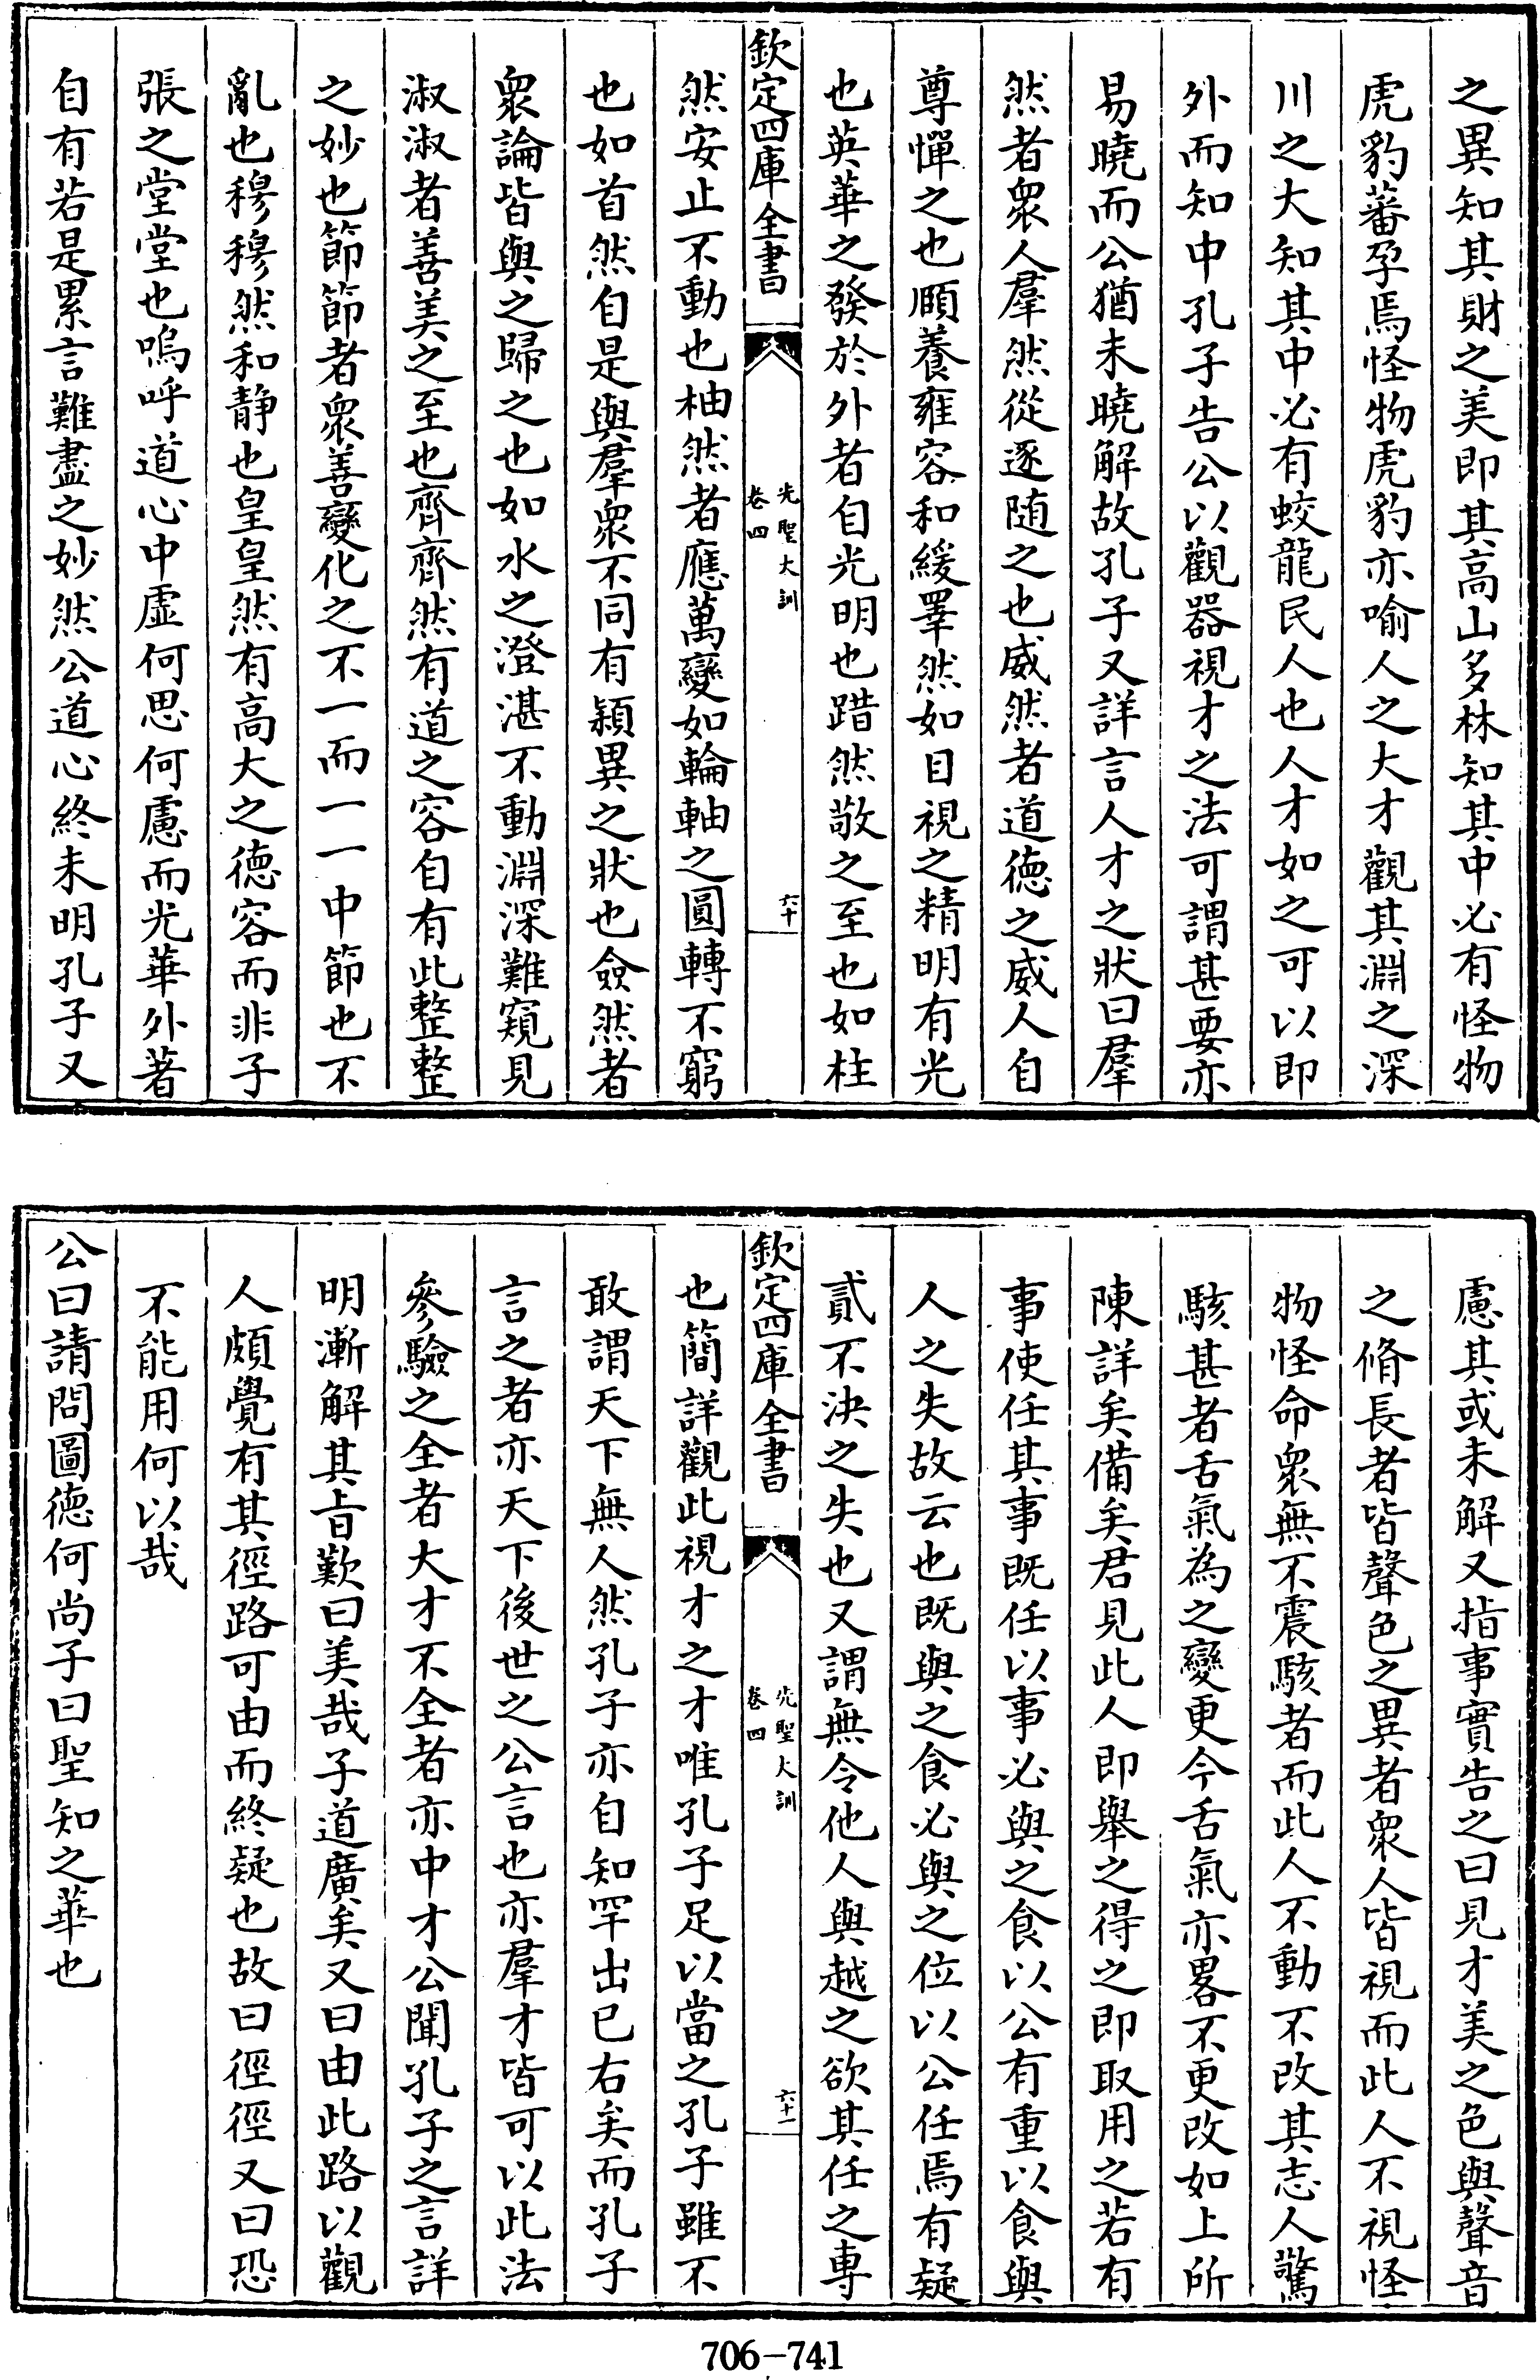 之異知其財之美即其高山多林知其中必有怪物
虎豹蕃孕焉怪物虎豹亦喻人之大才觀其淵之深
川之大知其中必有蛟龍民人也人才如之可以即
外而知中孔子告公以觀器視才之法可謂甚要亦
易曉而公猶未曉解故孔子又詳言人才之狀曰羣
然者衆人羣然從逐随之也威然者道德之威人自
尊憚之也頤養雍容和緩睪然如目視之精明有光
也英華之發於外者自光明也踖然敬之至也如柱
欽定四庫全書
先聖大訓
卷四
六十
然安止不動也柚然者應萬變如輪軸之圓轉不窮
也如首然自是與羣衆不同有穎異之狀也僉然者
衆論皆與之歸之也如水之澄湛不動淵深難窺見
淑淑者善美之至也齊齊然有道之容自有此整整
之妙也節節者衆善變化之不一而一一中節也不
亂也穆穆然和静也皇皇然有高大之德容而非子
張之堂堂也嗚呼道心中虛何思何慮而光華外著
自有若是累言難盡之妙然公道心終未明孔子又
慮其或未解又指事實告之曰見才美之色與聲音
之脩長者皆聲色之異者衆人皆視而此人不視怪
物怪命衆無不震駭者而此人不動不改其志人驚
駭甚者舌氣為之變更今舌氣亦畧不更改如上所
陳詳矣備矣君見此人即舉之得之即取用之若有
事使任其事既任以事必與之食以公有重以食與
人之失故云也既與之食必與之位以公任焉有疑
貳不決之失也又謂無令他人與越之欲其任之専
欽定四庫全書
先聖大訓
卷四
六十一
也簡詳觀此視才之才唯孔子足以當之孔子雖不
敢謂天下無人然孔子亦自知罕出已右矣而孔子
言之者亦天下後世之公言也亦羣才皆可以此法
參驗之全者大才不全者亦中才公聞孔子之言詳
明漸解其旨歎曰美哉子道廣矣又曰由此路以觀
人頗覺有其徑路可由而終疑也故曰徑徑又曰恐
不能用何以哉
公曰請問圖德何尚子曰聖知之華也
706-741